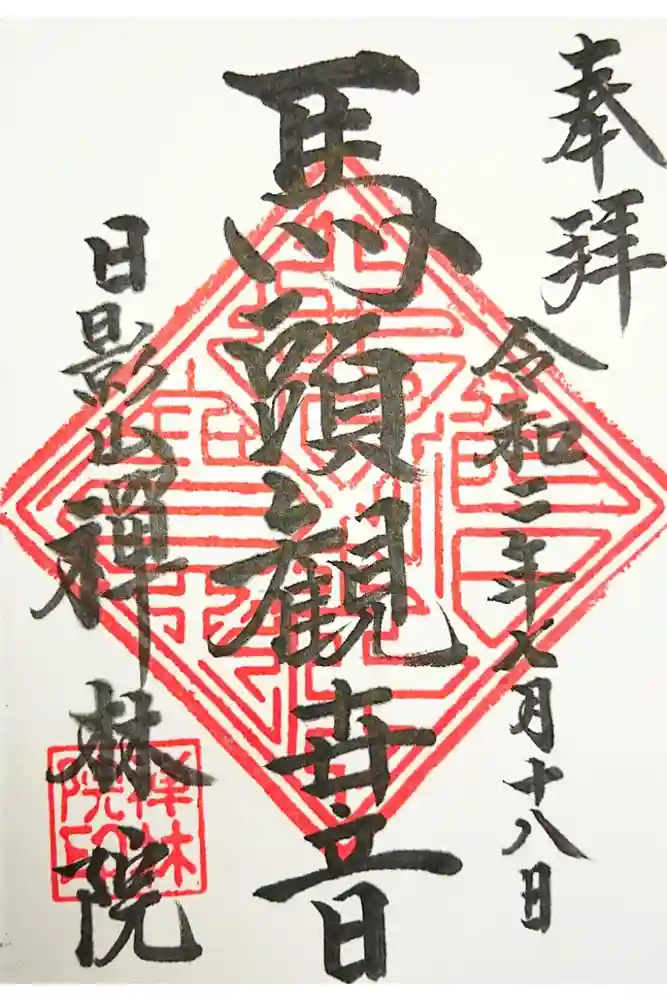 奉拝
令和二年七月十八日
馬頭観世音
日影山禪林院
禅林院印